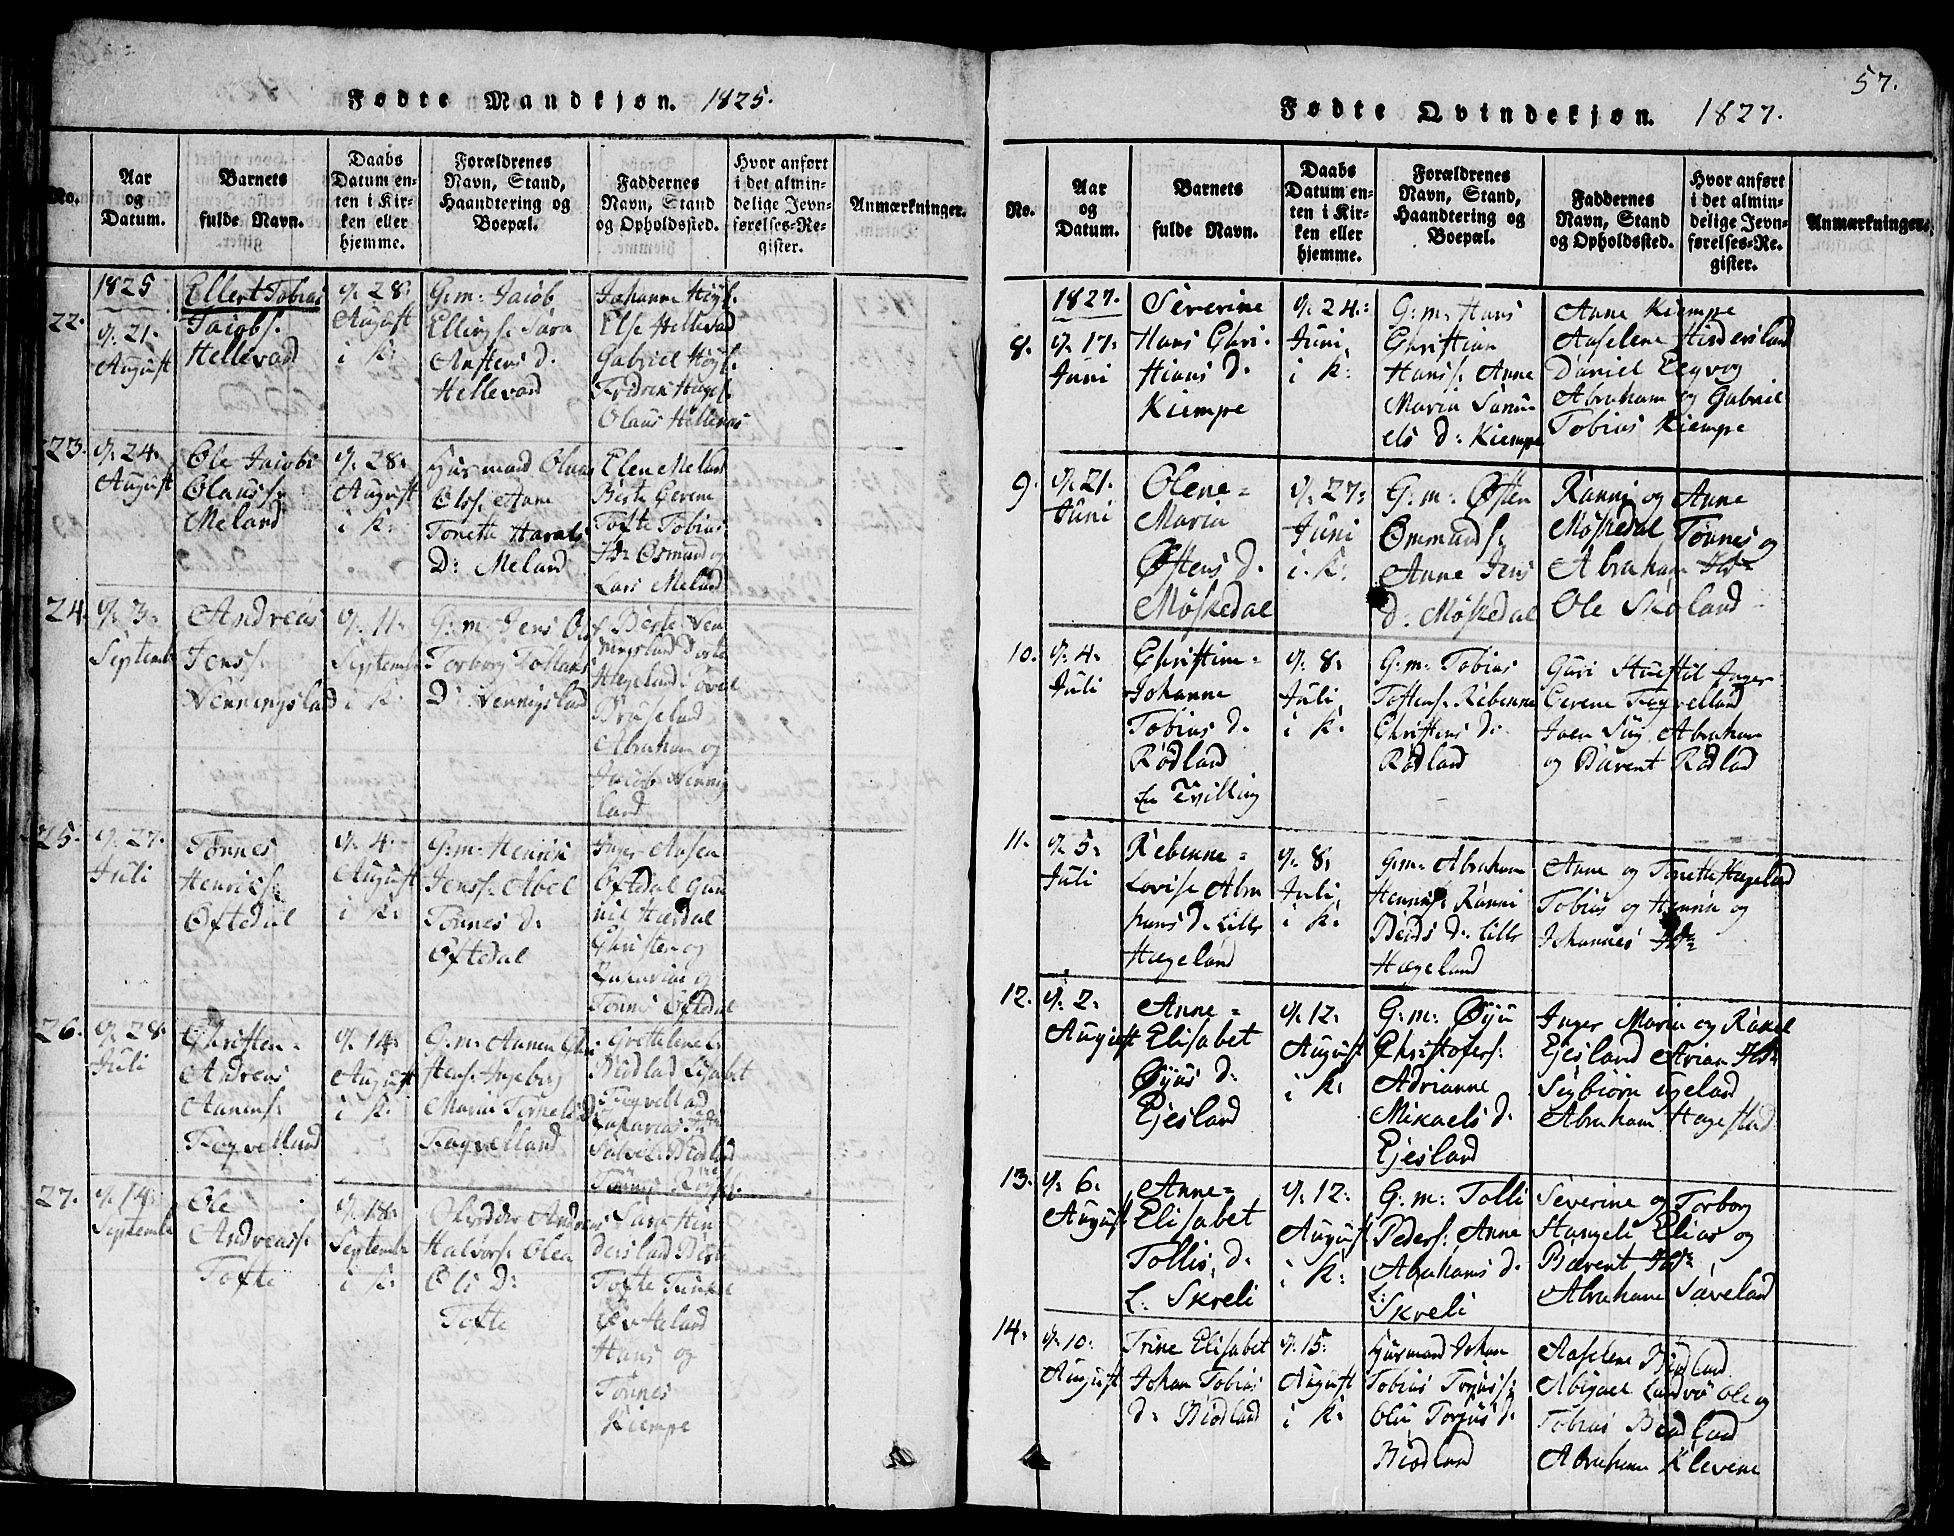 Fødte Mandkjøn. 1825.
No.
Aar og Datum.
Barnets fulde Navn.
Daabs Datum enten i Kirken eller hjemme.
Forældrenes Navn, Stand, Haandtering og Boepæl.
Faddernes Navn, Stand og Opholdssted.
Hvor anført i det almindelige Jevnførelses-Register.
Anmærkninger.
22.
1825
d. 21.
August
Ellert Tobias
Jacobs.
Hellevard
d. 28.
August
i K:
G:m: Jacob
Ellings. Sara
Anstens d.
Hellevard
Johanne Høyl.
Else Hellevard
Gabriel Høyl.
Olaus Hellevar
23.
d. 24.
August
Ole Jacobs
Olauss.
Meland
d. 28.
August
i K:
Husmand Olaus
Olss. Anne
Tonette Harals
D: Meland
Elen Meland
Berte Gerene
Tofte Tobias
Osmund og
Lars Meland
24.
d. 3.
Septembr
Andreas
Jenss.
Venningslad
d. 11.
Septembr
i K:
G:m: Jens Ols
Torborg Tollans
D: Vennigslad
Berte Ven
ningslad
Hægeland
Bruseland
Abraham og
Jacob Vennig
land
25.
d. 27.
Juli
Tønnes
Henriks.
Oftedal
d. 4.
August
i K:
G:m: Henrik
Jenss. Abel
Tønnes d.
Oftedal
Inger Aasen
Oftedal Gun
nil Hærdal
Christen og
Zakarias og
Tønnes Oftedal
26.
d. 28.
Juli
Christen
Andreas
Aanens.
Fægvelland
d. 14.
August
i K:
G:m: Aanen Chri
stens. Ingeborg
Maria Tønnes D
Fægvelland
Gretelene
Biodlad Lisabet
Fægvellad
Zakarias Ibd.
Salve Biodlad
27.
d. 14.
Septembr
Ole
Andreass.
Tofte
d. 18.
Septembr
i K:
Andreas
Halvors. Olea
Ols D:
Tofte
Sara Hin
dersland Berte
Tofte
Hans og
Tønnes
Kiempe
57.
Fødte Qvindekjøn. 1827.
No.
Aar og Datum.
Barnets fulde Navn.
Daabs Datum enten i Kirken eller hjemme.
Forældrenes Navn, Stand, Haandtering og Boepæl.
Faddernes Navn, Stand og Opholdssted.
Hvor anført i det almindelige Jevnførelses-Register.
Anmærkninger.
8.
1827.
d. 17.
Juni
Severine
Hans Chri-
stians d.
Kiempe
d. 24.
Juni
i K:
G:m: Hans
Christian
Hanss. Anne
Maria Samu
els d: Kiempe
Anne Kiempe
Aaselene Hindersland
Daniel Eeg og
Abraham og Gabriel
Tobias Kiempe
9.
d. 21.
Juni
Olene
Maria
Østens d.
Møskedal
d. 27.
Juni
i K:
G:m: Østen
Ommunds.
Anne Jens
d: Møskedal
Ranni og Anne
Møskedal Tønnes og
Abraham Ibd
Ole Skoland
10.
d. 4.
Juli
Christine
Johanne
Tobias d.
Rødland
En Tvilling
d. 8.
Juli
i K:
G:m: Tobias
Tostens. Rebenne
Christens d.
Rødland
Guri Stuestøl Inger
Gerene Fægvelland
Joen Abraham
og Bærent Rødlad
11.
d. 5.
Juli
Rebenne
Lovise Abra
hams d. Lille
Hægeland
d. 8.
Juli
i K:
G:m: Abraham
Henriks. Ranni
Bends d. Lille
Hægeland
Anne og Tonette Hægelad
Tobias og Henrik og
Johannes Ibd
12.
d. 2.
August
Anne
Elisabet
Øyus d.
Ejesland
d. 12.
August
i K:
G:m: Øyu
Christofers.
Adrianne
Mikaels d.
Ejesland
Inger Maria og Rakel
Ejesland Arian Ibd
Sigbiørn Egelad
Abraham Hagestad
13.
d. 6.
August
Anne
Elisabet
Tollis d.
L: Skreli
d. 12.
August
i K:
G:m: Tolli
Peders. Anne
Abrahams d.
L: Skreli
Severine og Torborg
Stangeli Elias og
Bærent Ibd
Abraham Saveland
14.
d. 10.
August
Trine Elisabet
Johan Tobias
d: Biodland
d. 15.
August
i K:
Husmand Johan
Tobias Torjuss.
Olu Torjus d.
Biodland
Aaselene Biodland
Abigael Landvø Ole og
Tobias Biodland
Abraham Klevene